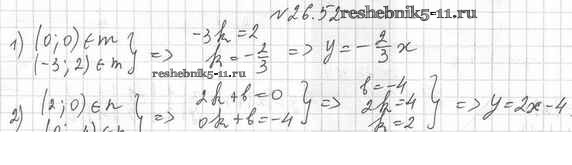 №26.52 reshebnik5-11.ru
1) (0; 0) ∈ m
(-3; 2) ∈ m } => -3k = 2
k = -2/3 => y = -2/3 x
reshebnik5-11.ru
2) (2; 0) ∈ n
} => 2k + b = 0
0k + b = -4 } => b = -4
2k = 4
k = 2 } => y = 2x - 4